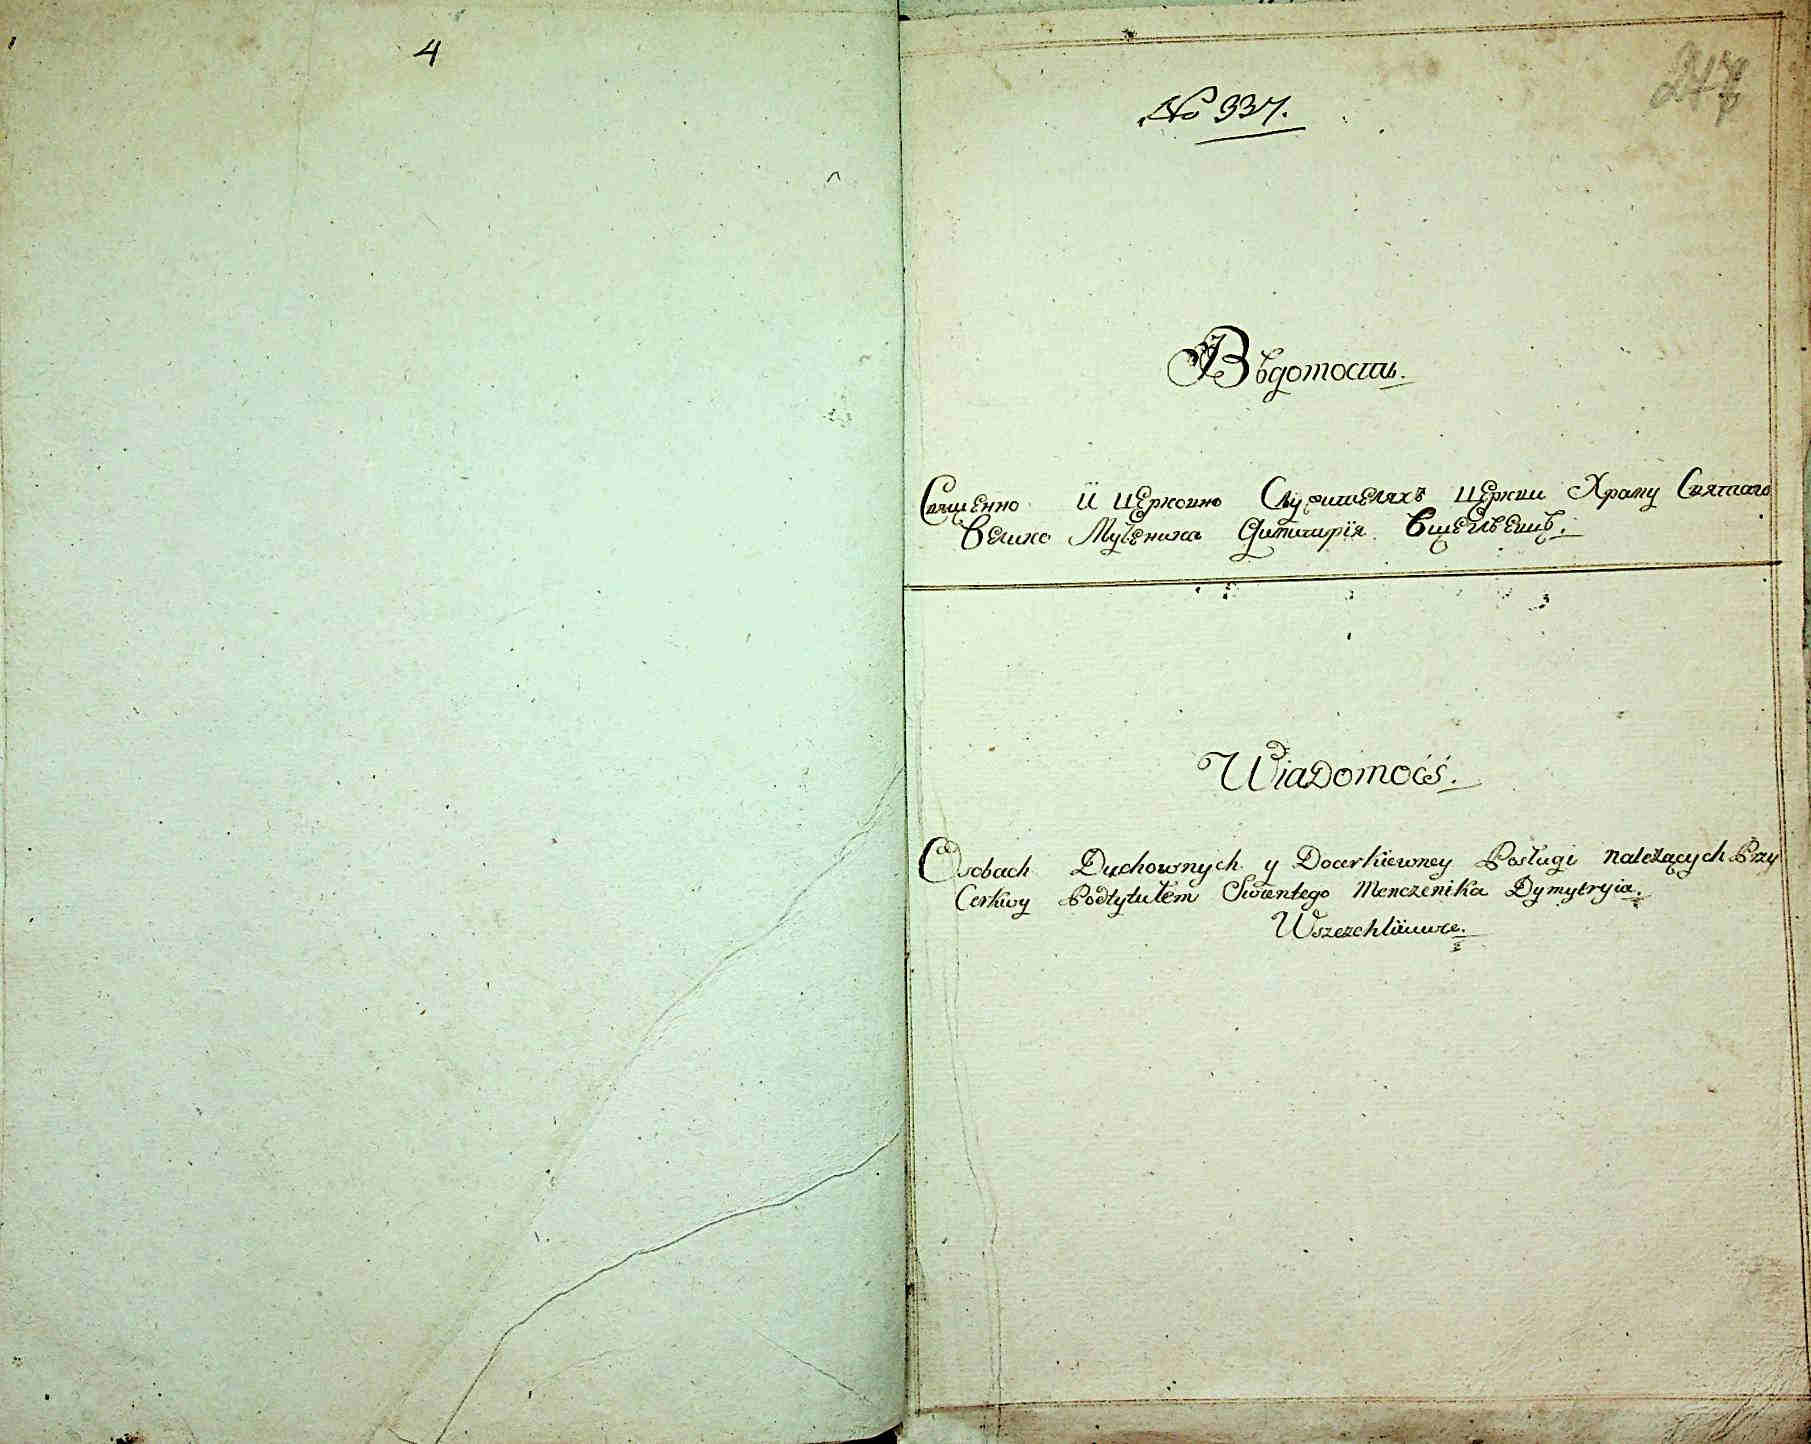 4
No 337.
247
Вѣдомость.
Священно И церковно Служителяхъ церкви Храму Святаго
Велико Мученика Димитрїя
Wiadomość.
Osobach Duchownych y Docerkiewney Posługi należących Przy
Cerkwy Podtytułem Swientego Menczenika Dymytryia.